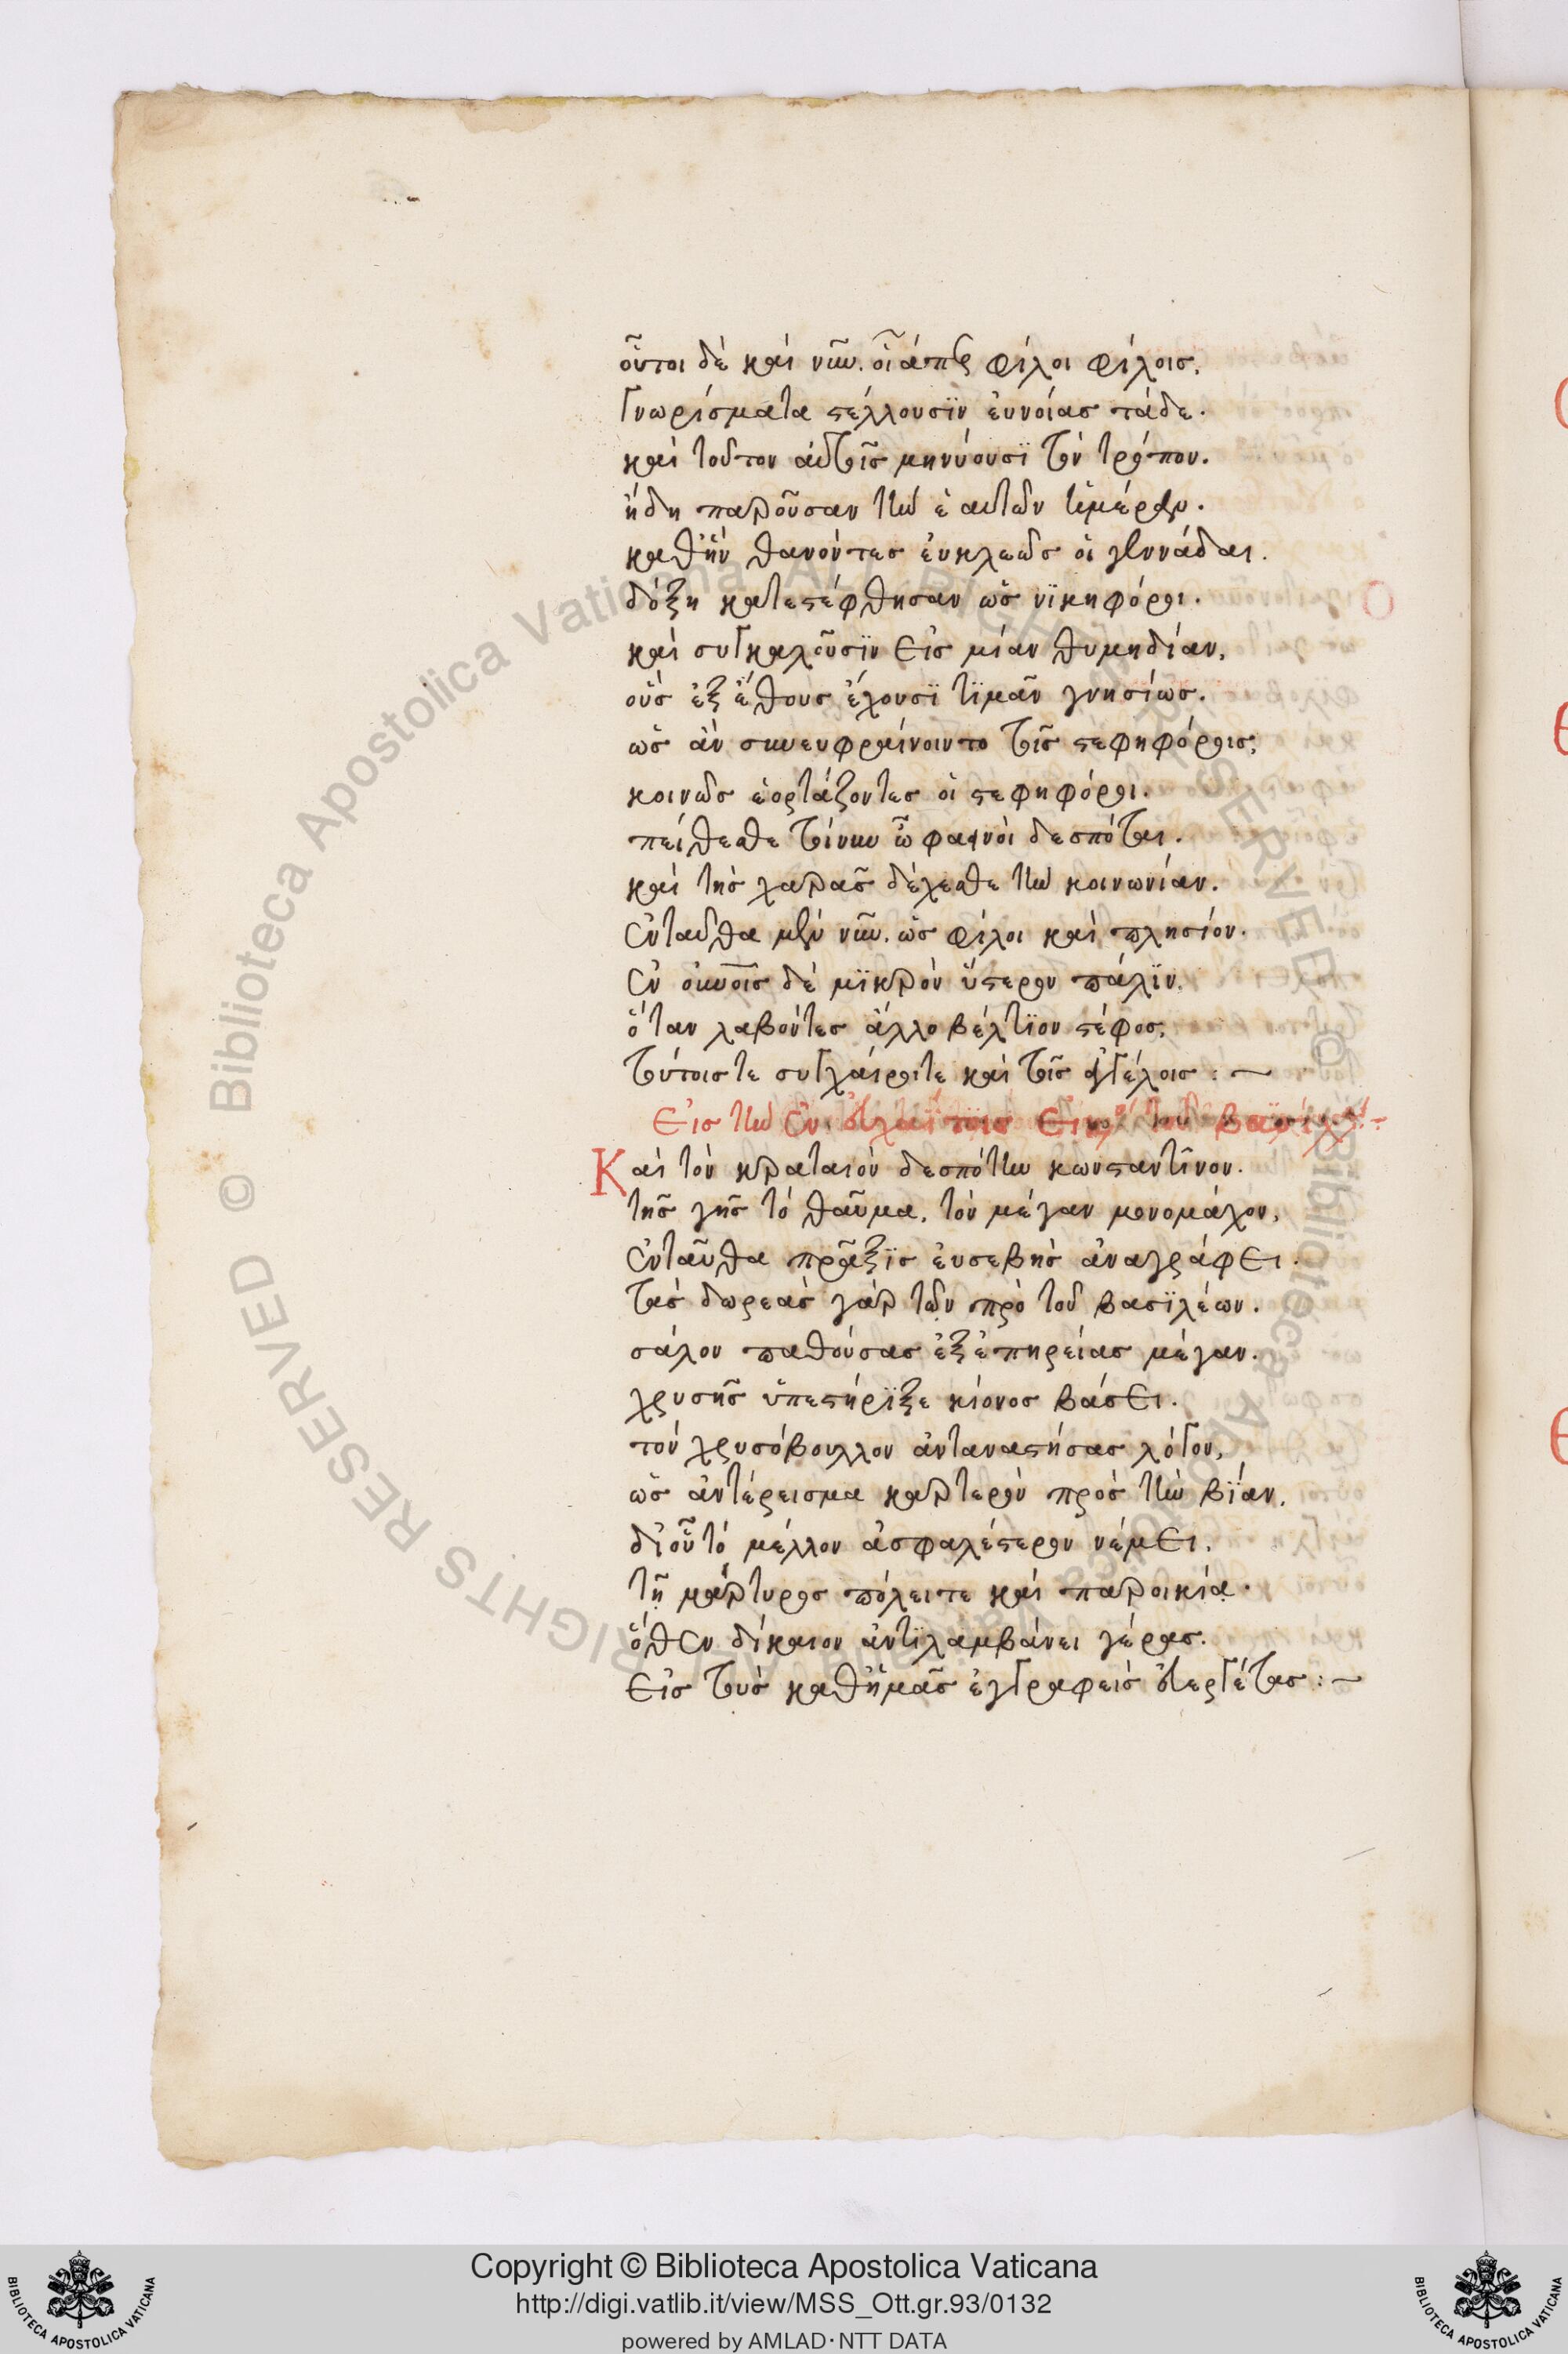 οὗτοι δὲ καὶ νῦν. οἷἅπερ φίλοι φίλοις,
Γνωρίσματα στέλλουσϊν ἐυνοίας τάδε.
καὶ τοῦτον ἀυτοῖς μηνύουσϊ τὸν τρόπον.
ἤδη παροῦσαν τὴν ἑαυτῶν ἡμέραν.
καθἣν θανόντες ἐυκλεῶς οἱ γεννάδαι.
δόξη κατεστέφθησαν ὡς νϊκηφόροι.
καὶ συγκαλοῦσϊν εἰς μίαν θυμηδίαν,
οὓς ἐξ ἔθους ἔχουσϊ τϊμᾶν γνησίως.
ὡς ἂν συνευφραίνοιντο τοῖς στεφηφόροις,
κοινῶς ἑορτάζοντες οἱ στεφηφόροι.
πείθεσθε τοίνυν ὦ φαεινοὶ δεσπόται.
καὶ τῆς χαρᾶς δέχεσθε τὴν κοινωνίαν.
ἐνταῦθα μὲν νῦν. ὡς φίλοι καὶ πλησίον.
ἐν οὐνοῖς δὲ μϊκρὸν ὕστερον πάλϊν.
ὅταν λαβόντες ἄλλο βέλτϊον στέφος,
τούτοιστε συγχαίροιτε καὶ τοῖς ἀγγέλοις :~
Εἰς τὴν ἐν εὐχαΐτοις εἰκόνα τοῦ βασϊλέως :-
Καὶ τὸν κραταιὸν δεσπότην κωνσταντῖνον.
τῆς γῆς τὸ θαῦμα, τὸν μέγαν μονομάχον,
ἐνταῦθα πρᾶξϊς ἐυσεβὴς ἀναγράφει.
τὰς δωρεὰς γὰρ τῶν πρὸ τοῦ βασϊλέων.
σάλον παθούσας ἐξ ἐπηρείας μέγαν.
χρυσῆς ὑπεστήρϊξε κίονος βάσει.
τὸν χρυσόβουλλον ἀνταναστήσας λόγον,
ὡς ἀντέρεισμα καρτερὸν πρὸς τὴν βΐαν,
διοὗ τὸ μέλλον ἀσφαλέστερον νέμει,
τῇ μάρτυρος πόλειτε καὶ παροικίᾳ.
ὅθεν δίκαιον ἀντϊλαμβάνει γέρας.
εἰς τοὺς καθἡμᾶς ἐγγραφεὶς ἐυεργέτας :~
Copyright © Biblioteca Apostolica Vaticana
http://digi.vatlib.it/view/MSS_Ott.gr.93/0132
powered by AMLAD·NTT DATA
BIBLIOTECA APOSTOLICA VATICANA
BIBLIOTECA APOSTOLICA VATICANA
© Biblioteca Apostolica Vaticana ALL RIGHTS RESERVED
© Biblioteca Apostolica Vaticana ALL RIGHTS RESERVED